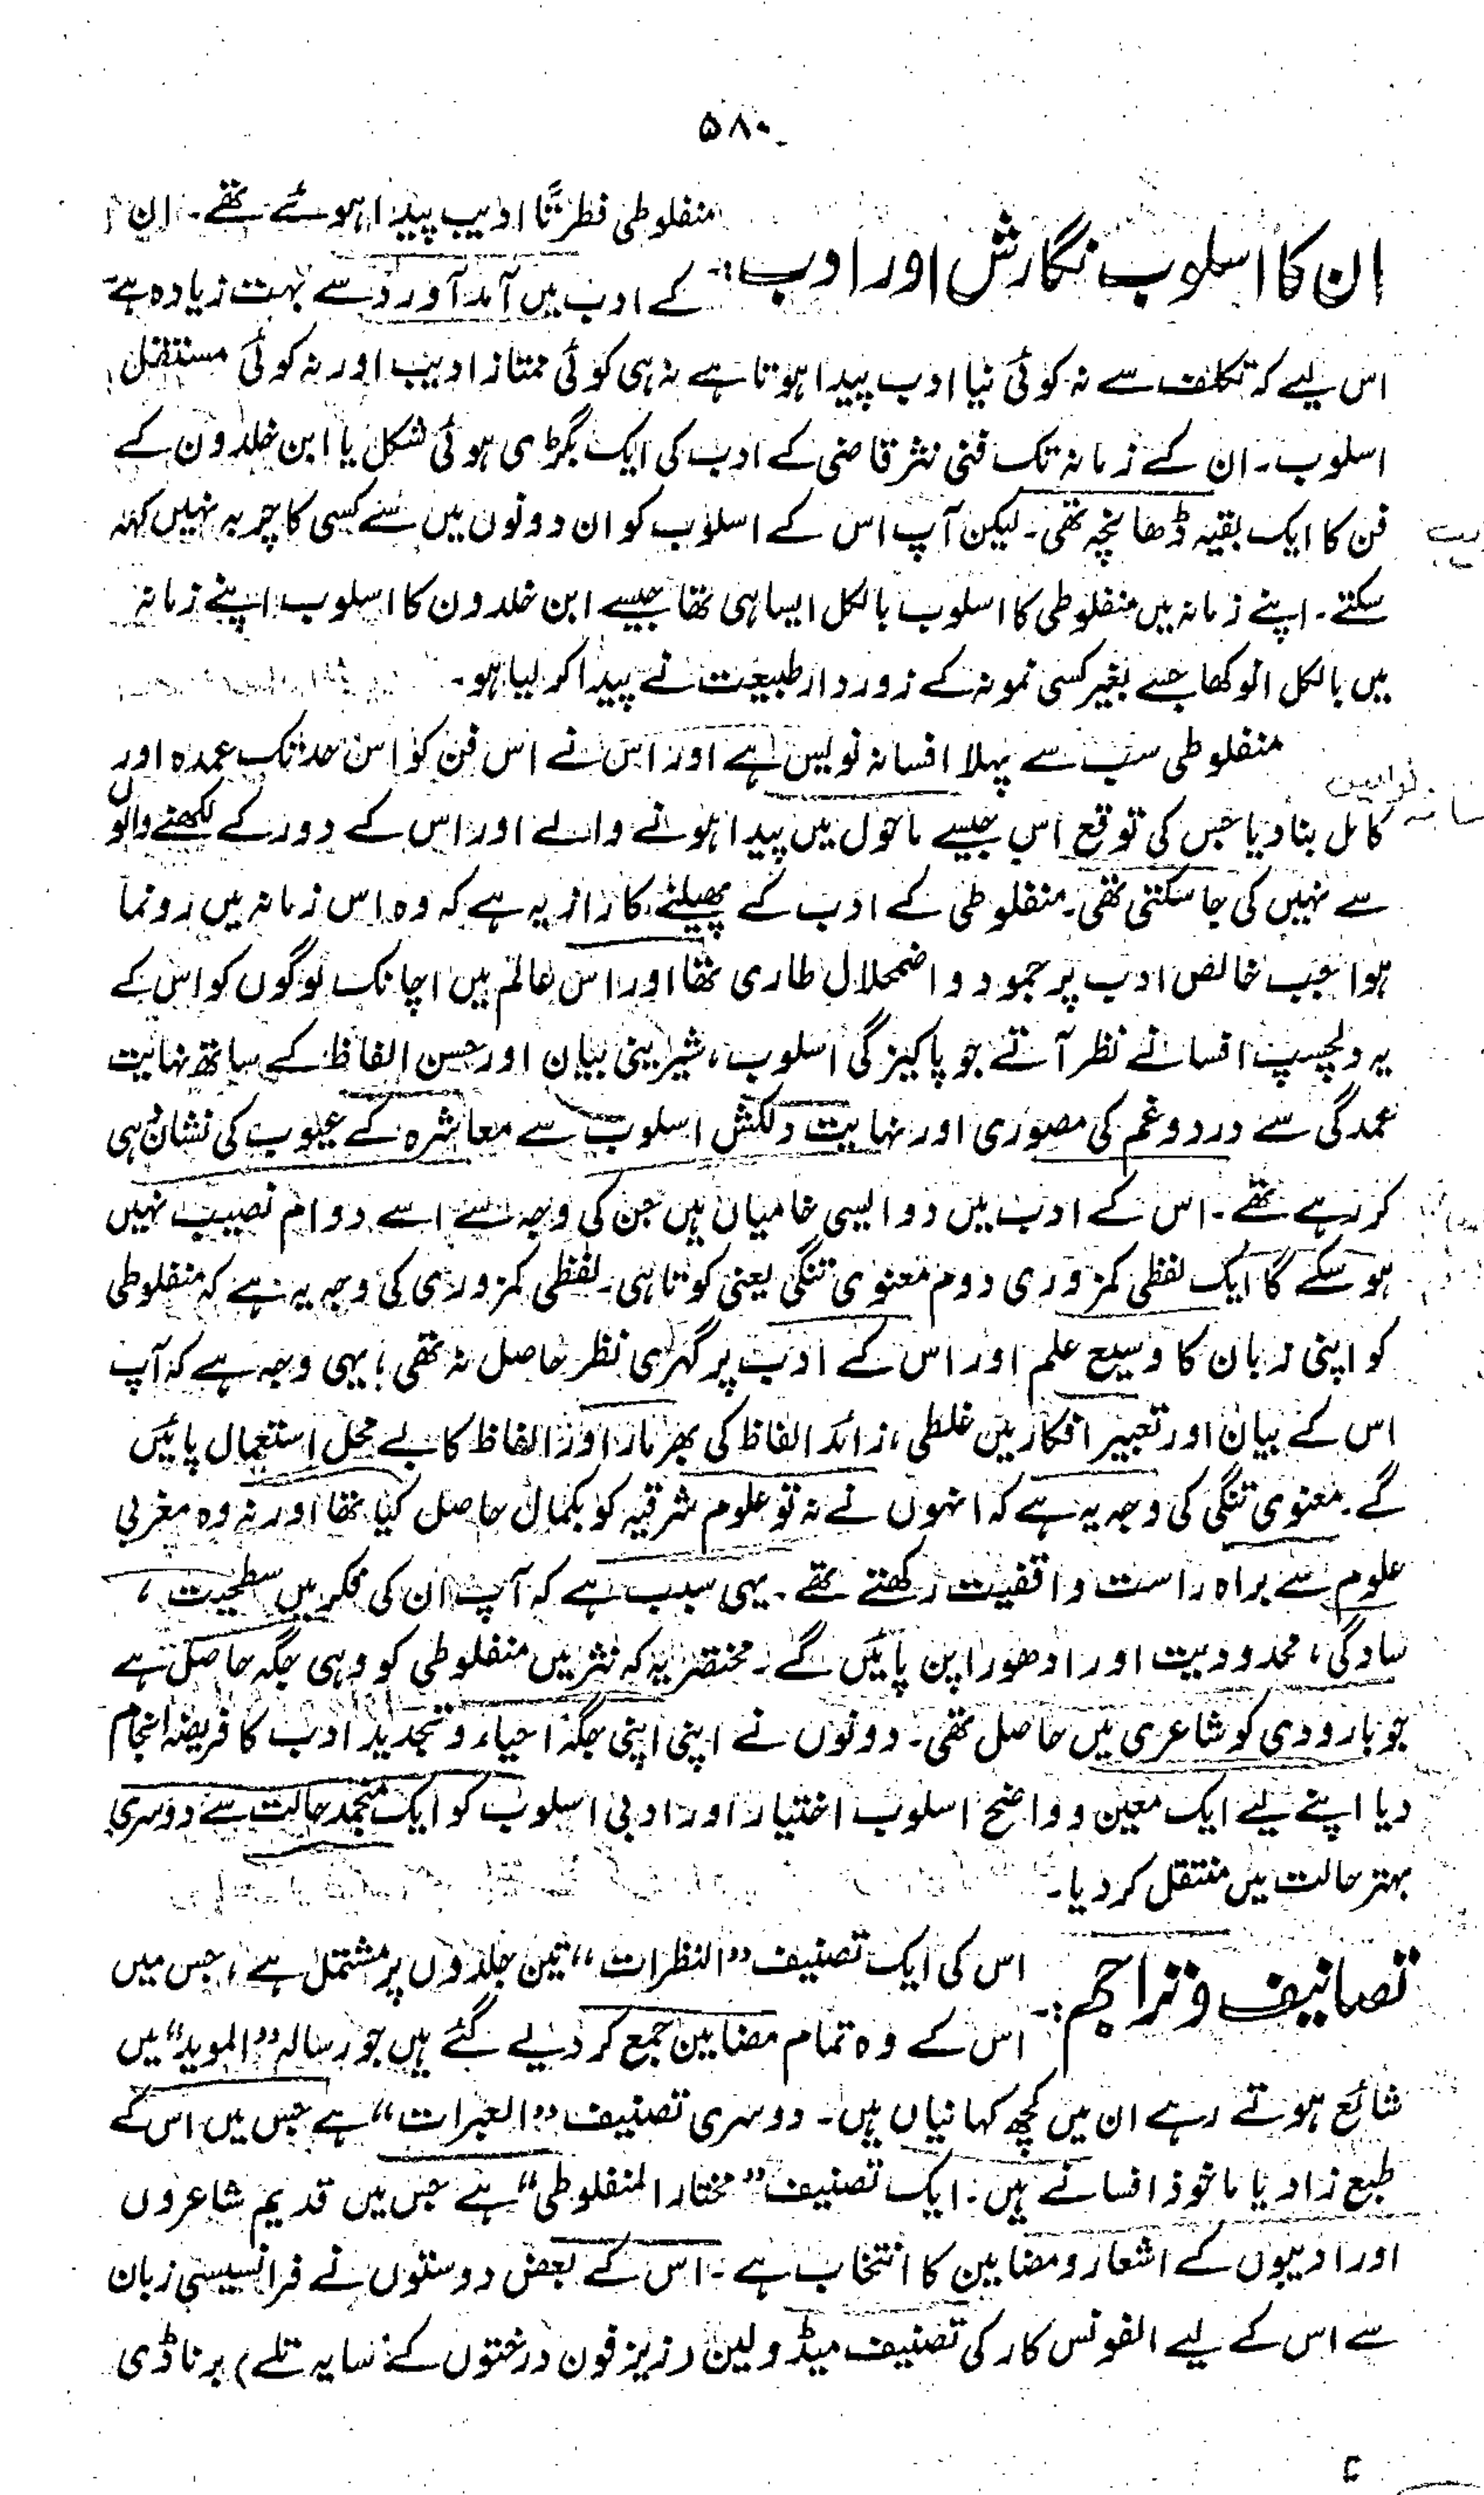 ۵۸۰
ان کا اسلوب نگارش اور ادب:-
منفلوطی فطرتًا ادیب پیدا ہوئے تھے۔ ان
کے ادب میں آمد آورد سے بہت زیادہ ہے
اس لیے کہ تکلف سے نہ کوئی نیا ادب پیدا ہوتا ہے نہ ہی کوئی ممتاز ادیب اور نہ کوئی مستقل
اسلوب۔ ان کے زمانہ تک فنی نثر قاضی کے ادب کی ایک بگڑی ہوئی شکل یا ابن خلدون کے
فن کا ایک بقیہ ڈھانچہ تھی۔ لیکن آپ اس کے اسلوب کو ان دونوں میں سے کسی کا چربہ نہیں کہہ
سکتے۔ اپنے زمانہ میں منفلوطی کا اسلوب بالکل ایسا ہی تھا جیسے ابن خلدون کا اسلوب اپنے زمانہ
میں بالکل انوکھا جسے بغیر کسی نمونہ کے زوردار طبیعت نے پیدا کر لیا ہو۔
منفلوطی سب سے پہلا افسانہ نویس ہے اور اس نے اس فن کو اس حد تک عمدہ اور
کامل بنا دیا جس کی توقع اس جیسے ماحول میں پیدا ہونے والے اور اس کے دور کے لکھنے والوں
سے نہیں کی جا سکتی تھی۔ منفلوطی کے ادب کے پھیلنے کا راز یہ ہے کہ وہ اس زمانہ میں رونما
ہوا جب خالص ادب پر جمود و اضمحلال طاری تھا اور اس عالم میں اچانک لوگوں کو اس کے
یہ دلچسپ افسانے نظر آتے جو پاکیزگی اسلوب، شیرینی بیان اور حسن الفاظ کے ساتھ نہایت
عمدگی سے درد و غم کی مصوری اور نہایت دلکش اسلوب سے معاشرہ کے عیوب کی نشاندہی
کر رہے تھے۔ اس کے ادب میں دو ایسی خامیاں ہیں جن کی وجہ سے اسے دوام نصیب نہیں
ہو سکے گا ایک لفظی کمزوری دوم معنوی تنگی یعنی کوتاہی۔ لفظی کمزوری کی وجہ یہ ہے کہ منفلوطی
کو اپنی زبان کا وسیع علم اور اس کے ادب پر گہری نظر حاصل نہ تھی؛ یہی وجہ ہے کہ آپ
اس کے بیان اور تعبیر افکار میں غلطی، زائد الفاظ کی بھرمار اور الفاظ کا بے محل استعمال پائیں
گے۔ معنوی تنگی کی وجہ یہ ہے کہ انہوں نے نہ تو علوم شرقیہ کو بکمال حاصل کیا تھا اور نہ وہ مغربی
علوم سے براہ راست واقفیت رکھتے تھے۔ یہی سبب ہے کہ آپ ان کی فکر میں سطحیت،
سادگی، محدودیت اور ادھورا پن پائیں گے۔ مختصر یہ کہ نثر میں منفلوطی کو وہی جگہ حاصل ہے
جو بارودی کو شاعری میں حاصل تھی۔ دونوں نے اپنی اپنی جگہ احیاء و تجدید ادب کا فریضہ انجام
دیا اپنے لیے ایک معین و واضح اسلوب اختیار اور ادبی اسلوب کو ایک منجمد حالت سے دوسری
بہتر حالت میں منتقل کر دیا۔
تصانیف و تراجم:-
اس کی ایک تصنیف "النظرات" تین جلدوں پر مشتمل ہے، جس میں
اس کے وہ تمام مضامین جمع کر دیے گئے ہیں جو رسالہ "الموید" میں
شائع ہوتے رہے ان میں کچھ کہانیاں ہیں۔ دوسری تصنیف "العبرات" ہے جس میں اس کے
طبع زاد یا ماخوذ افسانے ہیں۔ ایک تصنیف "مختار المنفلوطی" ہے جس میں قدیم شاعروں
اور ادیبوں کے اشعار و مضامین کا انتخاب ہے۔ اس کے بعض دوستوں نے فرانسیسی زبان
سے اس کے لیے الفونس کار کی تصنیف میڈولین (زیزفون درختوں کے سایہ تلے) برناڈی